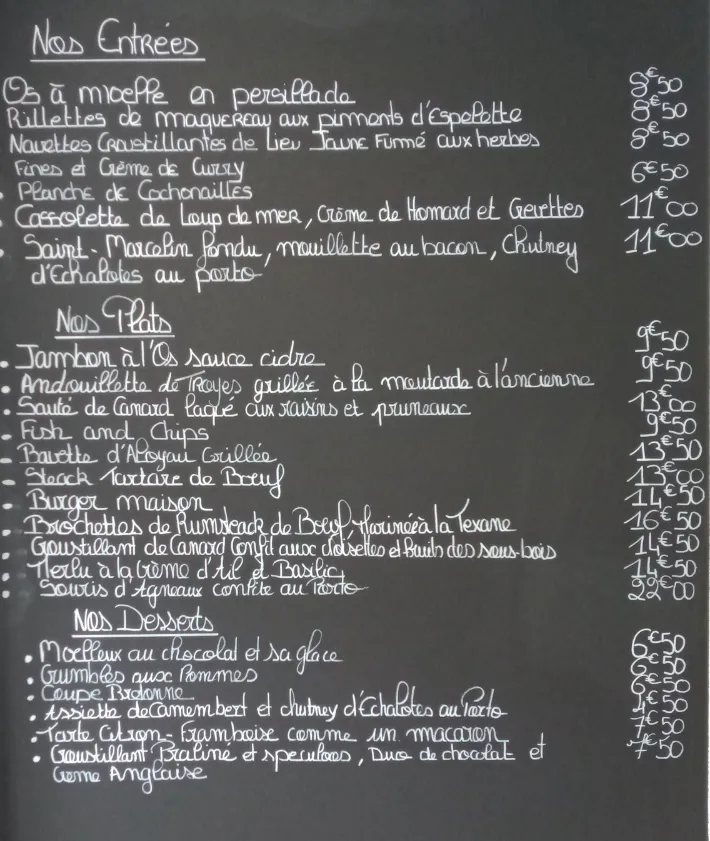 Nos Entrées
Os à moelle en persillade 8€50
Rillettes de maquereau aux piments d'Espelette 8€50
Navettes Croustillantes de Lieu Jaune Fumé aux herbes 8€50
Fines et Crème de Curry
• Planche de Cochonailles 6€50
• Cassolette de Loup de mer, Crème de Homard et Crevettes 11€00
• Saint-Marcelin fondu, mouillette au bacon, Chutney 11€00
d'Echalotes au porto
Nos Plats
• Jambon à l'Os sauce cidre 9€50
• Andouillette de Troyes grillée à la moutarde à l'ancienne 9€50
• Sauté de Canard laqué aux raisins et pruneaux 13€00
• Fish and Chips 9€50
• Bavette d'Aloyau Grillée 13€50
• Steack Tartare de Boeuf 13€00
• Burger maison 14€50
• Brochettes de Rumsteack de Boeuf Marinée à la Texane 16€50
• Croustillant de Canard Confit aux noisettes et fruits des sous-bois 14€50
• Merlu à la Crème d'Ail et Basilic 14€50
• Souris d'Agneaux confite au Porto 22€00
Nos Desserts
• Moelleux au chocolat et sa glace 6€50
• Crumbles aux Pommes 6€50
• Coupe Bretonne 6€50
• Assiette de Camembert et chutney d'Echalotes au Porto 4€50
• Tarte Citron-Framboise comme un macaron 7€50
• Croustillant Praliné et speculoos, Duo de chocolat et 7€50
Crème Anglaise